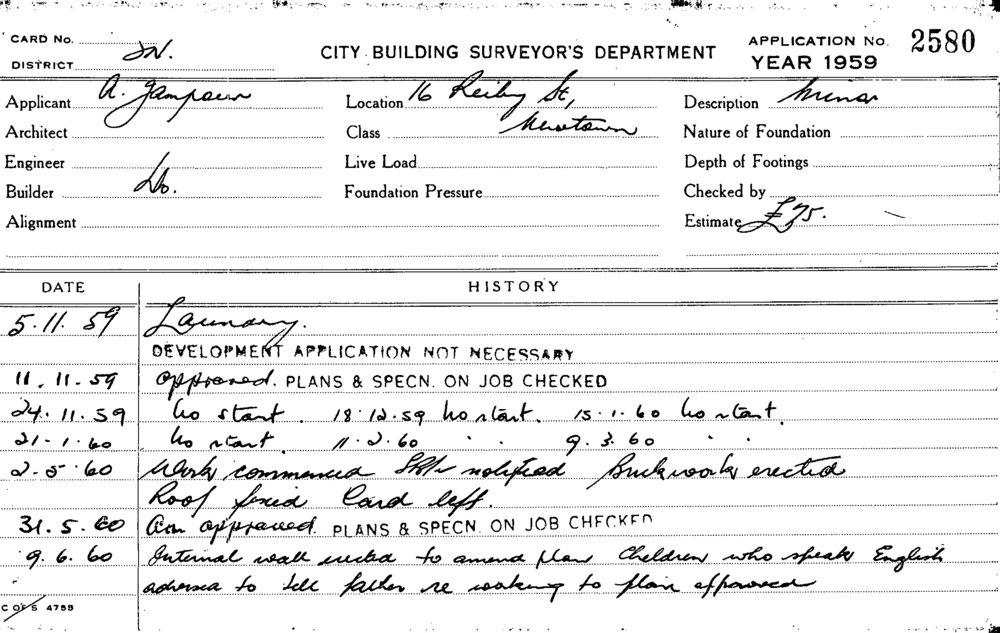 CARD No.
DISTRICT
CITY BUILDING SURVEYOR'S DEPARTMENT
APPLICATION No. 2580
YEAR 1959
Applicant A.
Location 16 Reiby St,
Newtown
Description Minor
Architect
Class
Nature of Foundation
Engineer
Live Load
Depth of Footings
Builder Do.
Foundation Pressure
Checked by
Alignment
Estimate £75.
DATE HISTORY
5.11.59 Laundry.
DEVELOPMENT APPLICATION NOT NECESSARY
11.11.59 approved. PLANS & SPECN. ON JOB CHECKED
24.11.59 No start. 18.12.59 No start. 15.1.60 No start.
21.1.60 No start 11.2.60 " " 9.3.60 " "
2.5.60 Work commenced notified Brickwork erected
Roof fixed Card left.
31.5.60 Am approved. PLANS & SPECN. ON JOB CHECKED
9.6.60 Internal wall erected to amend plan Children who speak English
advised to tell father re working to plan approved
C OF S 4755